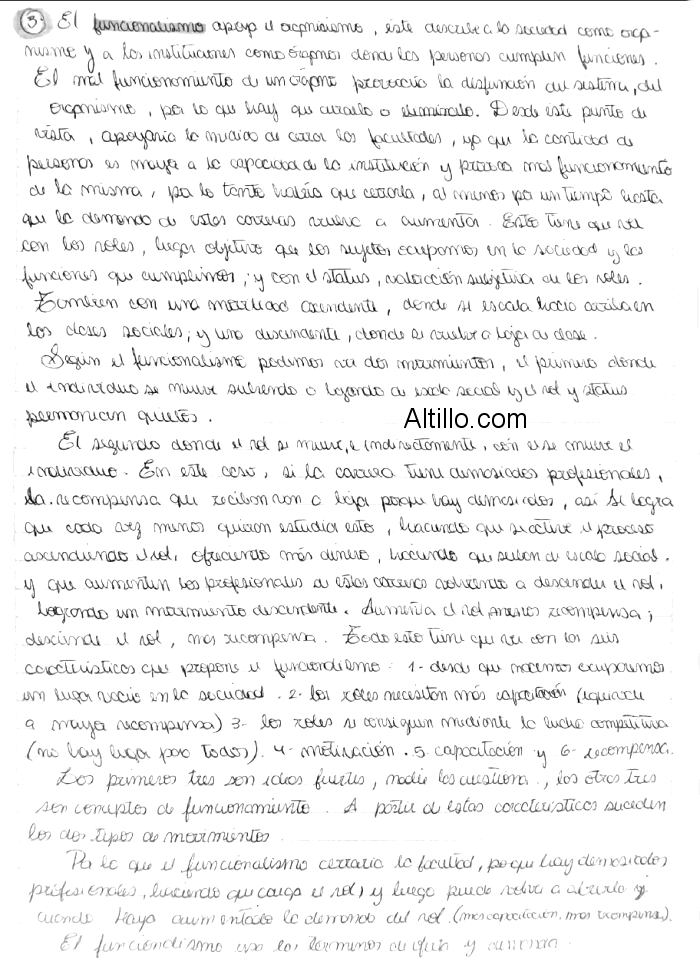 3. El funcionalismo apoya el organicismo, éste describe a la sociedad como orga-
nismo y a las instituciones como órganos donde las personas cumplen funciones.
El mal funcionamiento de un órgano provocaría la disfunción del sistema, del
organismo, por lo que hay que curarlo o eliminarlo. Desde este punto de
vista, apoyaría la medida de cerrar las facultades, ya que la cantidad de
personas es mayor a la capacidad de la institución y provoca mal funcionamiento
de la misma, por lo tanto habría que cerrarla, al menos por un tiempo hasta
que la demanda de estas carreras vuelva a aumentar. Esto tiene que ver
con los roles, lugar objetivo que los sujetos ocupamos en la sociedad y las
funciones que cumplimos; y con el status, valoración subjetiva de los roles.
También con una movilidad ascendente, donde se escala hacia arriba en
las clases sociales; y una descendente, donde se vuelve a bajar de clase.
Según el funcionalismo podemos ver dos movimientos, el primero donde
el individuo se mueve subiendo o bajando de escala social y el rol y status
permanecen quietos.
Altillo.com
El segundo donde el rol se mueve, e indirectamente, con él se mueve el
individuo. En este caso, si la carrera tiene demasiados profesionales,
la recompensa que reciben van a bajar porque hay demasiados, así se logra
que cada vez menos quieran estudiar esto, haciendo que se active el proceso
ascendiendo el rol, ofreciendo más dinero, haciendo que suban de escala social.
y que aumenten los profesionales de estas carreras volviendo a descender el rol,
logrando un movimiento descendente. Aumenta el rol, menos recompensa;
desciende el rol, mas recompensa. Todo esto tiene que ver con las seis
características que propone el funcionalismo: 1- desde que nacemos ocuparemos
un lugar vacio en la sociedad. 2- los roles necesitan más capacitación (equivale
a mayor recompensa) 3- los roles se consiguen mediante la lucha competitiva
(no hay lugar para todos). 4- motivación. 5- capacitación y 6- recompensa.
Los primeros tres son ideas fuertes, nadie las cuestiona, los otros tres
son conceptos de funcionamiento. A partir de estas características suceden
los dos tipos de movimientos.
Por lo que el funcionalismo cerraría la facultad, porque hay demasiados
profesionales, haciendo que caiga el rol, y luego puede volver a abrirla
cuando haya aumentado la demanda del rol. (mas capacitación, mas recompensa).
El funcionalismo usa los términos de oferta y demanda.